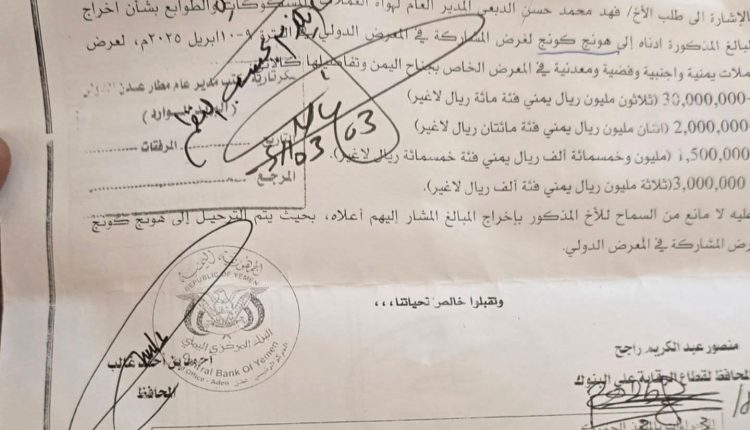 الإشارة الى طلب الأخ/ فهد محمد حسن الدبعي المدير العام لهواة العملات والمسكوكات والطوابع بشأن اخراج
لمبالغ المذكورة ادناه إلى هونج كونج لغرض المشاركة في المعرض الدولي الفترة ٩-١٠ابريل ٢٠٢٥م، لعرض
ملات يمنية واجنبية وفضية ومعدنية في المعرض الخاص بجناح اليمن وتفاصيلها
30,000,000 (ثلاثون مليون ريال يمني فئة مائة ريال لاغير)
2,000,000 (اثنان مليون ريال يمني فئة مائتان ريال لاغير)
1,500,000 (مليون وخمسمائة ألف ريال يمني فئة خمسمائة ريال لاغير).
3,000,000(ثلاثة مليون ريال يمني فئة ألف ريال لاغير).
عليه لا مانع من السماح للأخ المذكور بإخراج المبالغ المشار إليهم أعلاه، بحيث يتم الترحيل إلى هونج كونج
رض المشاركة في المعرض الدولي.
وتقبلوا خالص تحياتنا،،،
منصور عبد الكريم راجح
لمحافظ لقطاع الرقابة على البنوك
أحمد بن أحمد غالب
المحافظ
مدير عام مطار عدن
التاريخ
03
المرفقات
المرجع
الجمهورية اليمنية
REPUBLIC OF YEMEN
البنك المركزي اليمني
Central Bank Of Yemen
Office - Aden